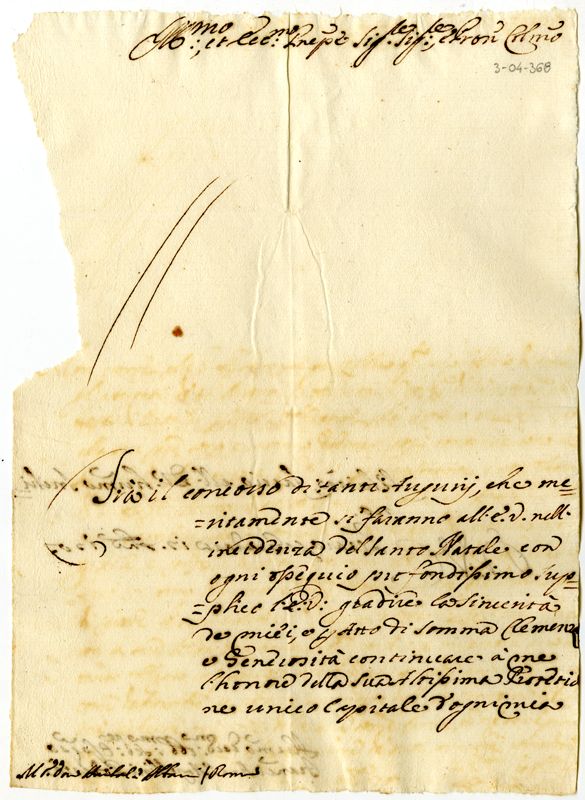 Ill:mo, et Ecc:mo Prñpe Sig:re Sig:re, e Pron Colmo
3-04-368
Tra il concorso di tanti Augurij, che me=
=ritamente si faranno all'E.V. nell'
incidenza del Santo Natale con
ogni ossequio profondissimo sup=
=plico l'E.V: gradire la sincerità
de miei, e p Atto di somma Clemenza
e Generosità continuare à me
l'honore della sua Altissima Protetio
ne unico Capitale d'ogni mia
Roma